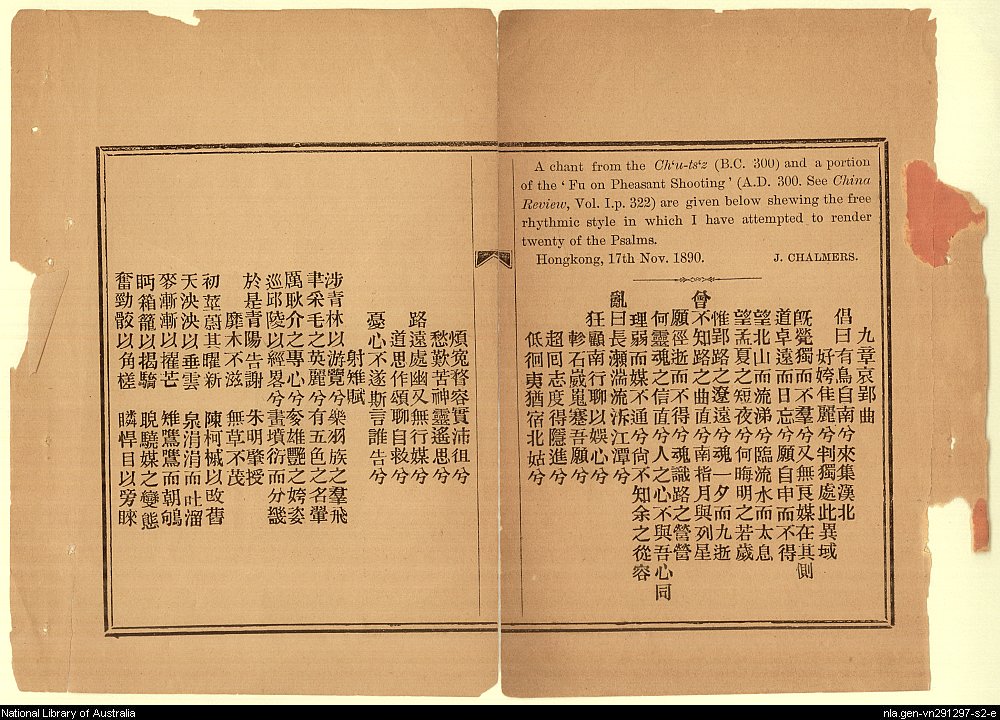 A chant from the Ch‘u-ts‘z (B.C. 300) and a portion
of the ‘Fu on Pheasant Shooting’ (A.D. 300. See China
Review, Vol. I.p. 322) are given below shewing the free
rhythmic style in which I have attempted to render
twenty of the Psalms.
Hongkong, 17th Nov. 1890. J. CHALMERS.
九章哀郢曲
倡曰有鳥自南兮來集漢北
好姱佳麗兮判獨處此異域
旣㷀獨而不羣兮又無良媒在其側
道卓遠而日忘兮願自申而不得
望北山而流涕兮臨流水而太息
望孟夏之短夜兮何晦明之若歲
惟郢路之遼遠兮魂一夕而九逝
曾不知路之曲直兮南指月與列星
願徑逝而不得兮魂識路之營營
何靈魂之信直兮人之心不與吾心同
理弱而媒不通兮尙不知余之從容
亂曰長瀨湍流泝江潭兮
狂顧南行聊以娛心兮
軫石崴嵬蹇吾願兮
超回志度行隱進兮
低徊夷猶宿北姑兮
煩寃瞀容實沛徂兮
愁歎苦神靈遙思兮
路遠處幽又無行媒兮
道思作頌聊自救兮
憂心不遂斯言誰告兮
射雉賦
涉青林以游覽兮樂羽族之羣飛
聿采毛之英麗兮有五色之名翬
厲耿介之專心兮奓雄豔之姱姿
巡邱陵以經畧兮畫墳衍而分畿
於是青陽告謝 朱明肇授
靡木不滋 無草不茂
初莖蔚其曜新 陳柯槭以改舊
天泱泱以垂雲 泉涓涓而吐溜
麥漸漸以擢芒 雉鷕鷕而朝鴝
眄箱籠以揭驕 睨驍媒之變態
奮勁骹以角槎 瞵悍目以旁睞
National Library of Australia
nla.gen-vn291297-s2-e